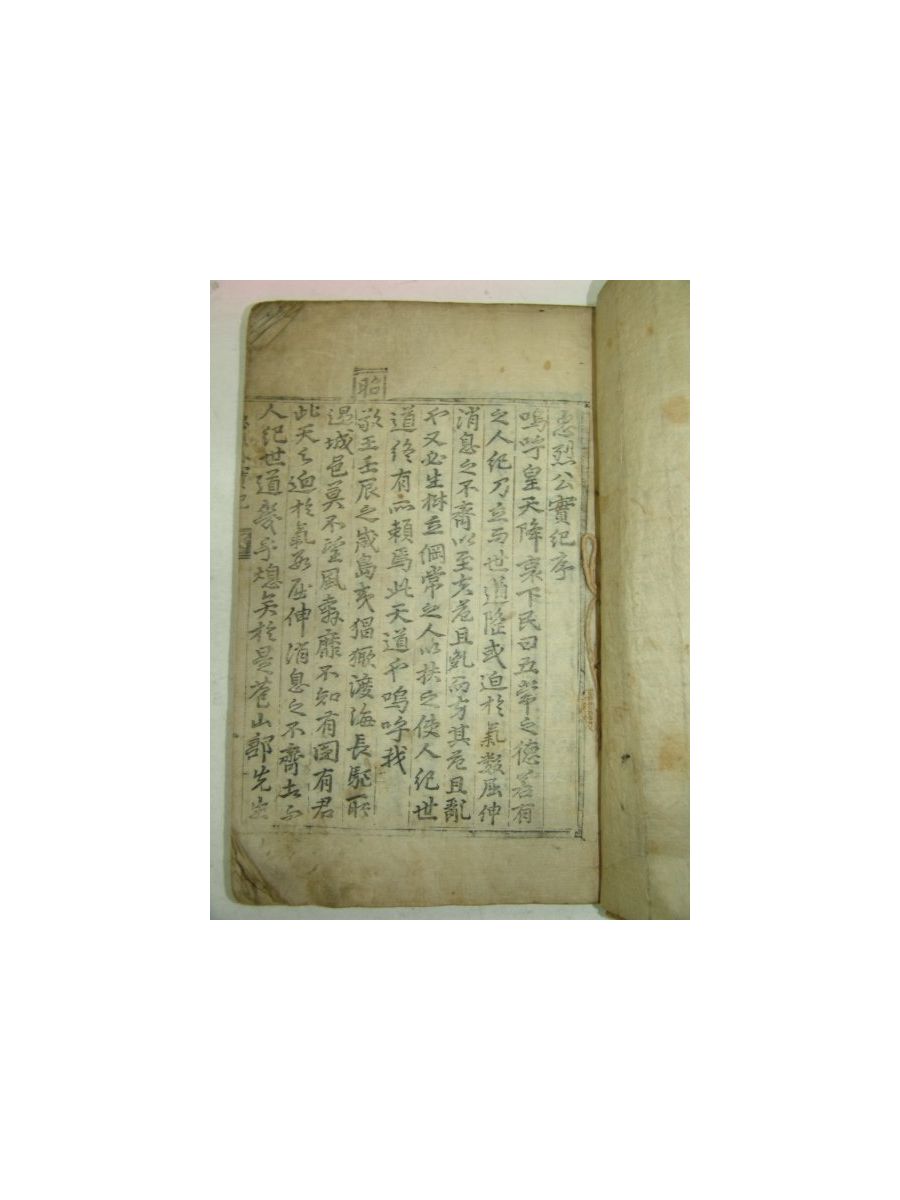 忠烈公實紀序
嗚呼皇天降衷下民曰五常之德若有
之人紀乃立而世道隆或迫於氣數屈伸
消息之不齊以至於危且亂而方其危且亂
也又必生樹立綱常之人以扶之使人紀世
道終有所賴焉此天道也嗚呼我
昭
敬王壬辰之歲島夷猖獗渡海長驅所
過城邑莫不望風奔靡不知有國有君
此天之迫於氣數屈伸消息之不齊而
人紀世道幾乎熄矣於是蒼山郭先生